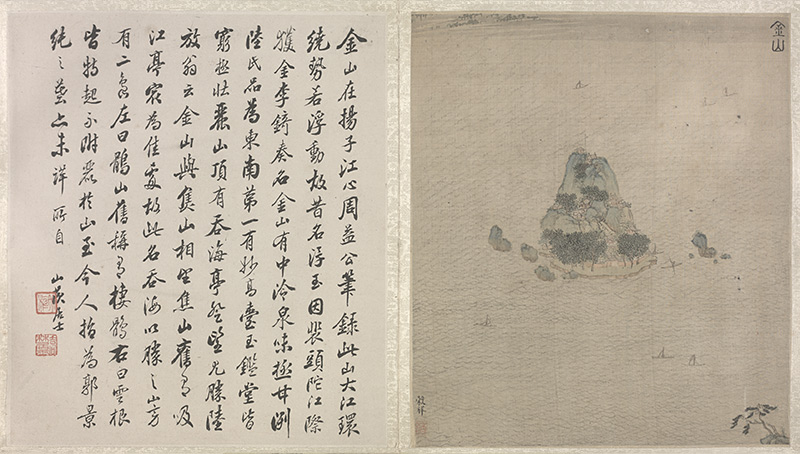 金山
金山在揚子江心周益公筆錄此山大江環
繞勢若浮動故昔名浮玉因裴頭陀江際
獲金李錡奏名金山有中泠泉味極甘冽
陸氏品為東南第一有妙高臺玉鑑堂皆
窮極壯麗山頂有吞海亭登望尤勝陸
放翁云金山與焦山相望焦山舊有吸
江亭最為佳處故此名吞海以勝之山旁
有二島左曰鶻山舊稱有棲鶻右曰雲根
皆特起不附麗於山至今人指為郭景
純之墓亦未詳所自
居士